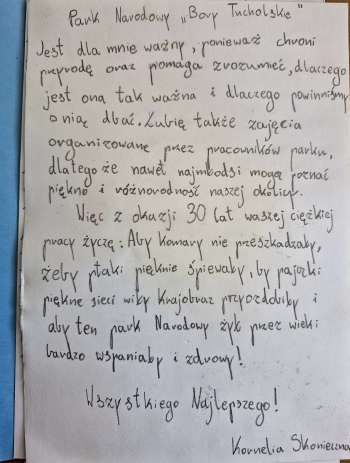 Park Narodowy „Bory Tucholskie"
Jest dla mnie ważny, ponieważ chroni
przyrodę oraz pomaga zrozumieć, dlaczego
jest ona tak ważna i dlaczego powinniśmy
o nią dbać. Lubię także zajęcia
organizowane przez pracowników parku,
dlatego że nawet najmłodsi mogą poznać
piękno i różnorodność naszej okolicy.
Więc z okazji 30 lat waszej ciężkiej
pracy życzę: Aby komary nie przeszkadzały,
żeby ptaki pięknie śpiewały, by pajączki
piękne sieci wiły krajobraz przyozdobiły i
aby ten park Narodowy żył przez wieki
bardzo wspaniały i zdrowy!
Wszystkiego Najlepszego!
Kornelia Skonieczna